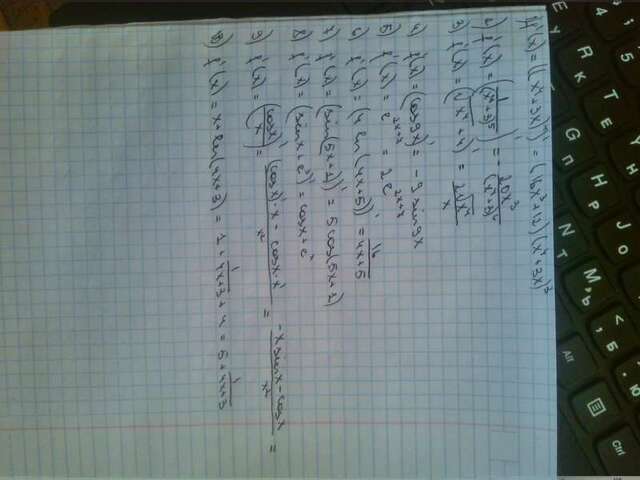 1) f'(x) = ((x⁴+3x)⁴)' = (16x³+12)(x⁴+3x)³
2) f'(x) = (1/(x⁴+3)⁵)' = - 20x³/(x⁴+3)⁶
3) f'(x) = (√x⁴ + 4)' = 2√x⁴/x
4) f'(x) = (cos9x)' = -9 sin9x
5) f'(x) = e^(2x+7) = 2e^(2x+7)
6) f'(x) = (4 ln(4x+5))' = 16/(4x+5)
7) f'(x) = (sin(5x+1))' = 5cos(5x+1)
8) f'(x) = (sinx+eˣ)' = cosx+eˣ
9) f'(x) = (cosx/x)' = ((cosx)'·x - cosx·x')/x² = (-xsinx-cosx)/x² =
10) f'(x) = x+ln(4x+3) = 1+ 1/(4x+3) + 4 = 5 + 1/(4x+3)
Alt
Ctrl